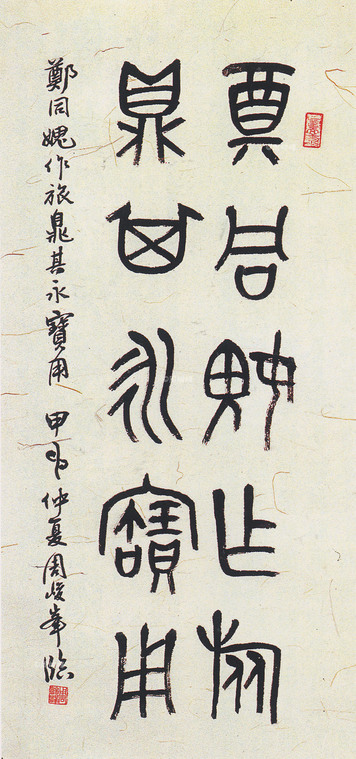 奠同媿乍旅
鼎其永寶用
鄭同媿作旅鼎其永寶用 甲 仲夏周峻峯臨